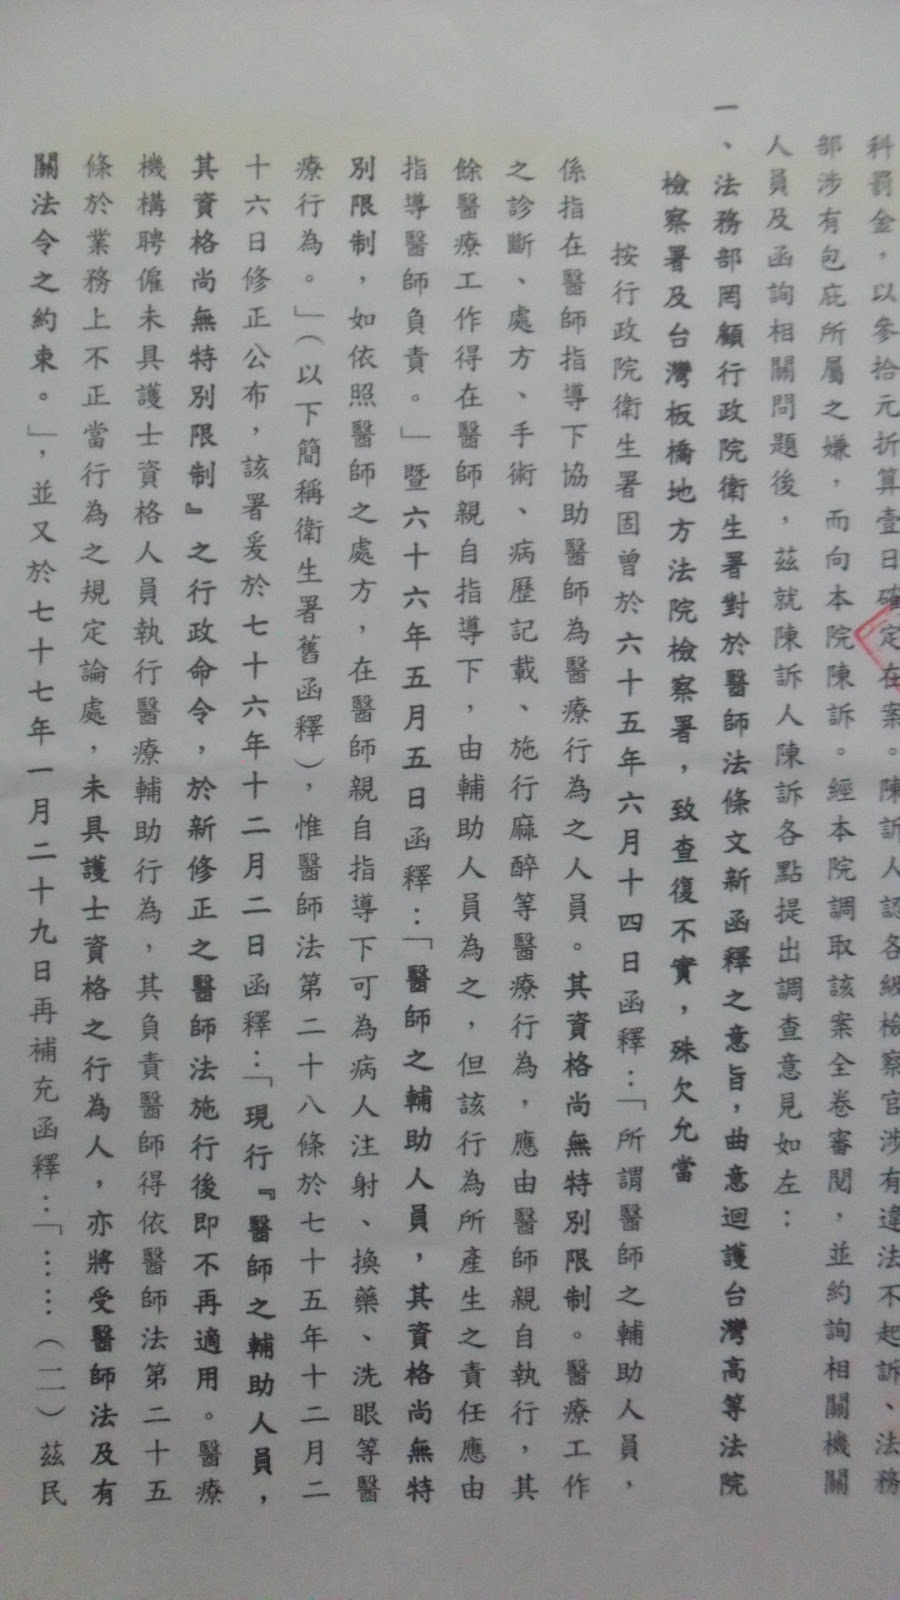 科罰金，以參拾元折算壹日確定在案。陳訴人認各級檢察官涉有違法不起訴、法務
部涉有包庇所屬之嫌，而向本院陳訴。經本院調取該案全卷審閱，並約詢相關機關
人員及函詢相關問題後，茲就陳訴人陳訴各點提出調查意見如左：
一、法務部罔顧行政院衛生署對於醫師法條文新函釋之意旨，曲意迴護台灣高等法院
檢察署及台灣板橋地方法院檢察署，致查復不實，殊欠允當
按行政院衛生署固曾於六十五年六月十四日函釋：「所謂醫師之輔助人員，
係指在醫師指導下協助醫師為醫療行為之人員。其資格尚無特別限制。醫療工作
之診斷、處方、手術、病歷記載、施行麻醉等醫療行為，應由醫師親自執行，其
餘醫療工作得在醫師親自指導下，由輔助人員為之，但該行為所產生之責任應由
指導醫師負責。」暨六十六年五月五日函釋：「醫師之輔助人員，其資格尚無特
別限制，如依照醫師之處方，在醫師親自指導下可為病人注射、換藥、洗眼等醫
療行為。」（以下簡稱衛生署舊函釋），惟醫師法第二十八條於七十五年十二月二
十六日修正公布，該署爰於七十六年十二月二日函釋：「現行『醫師之輔助人員，
其資格尚無特別限制』之行政命令，於新修正之醫師法施行後即不再適用。醫療
機構聘僱未具護士資格人員執行醫療輔助行為，其負責醫師得依醫師法第二十五
條於業務上不正當行為之規定論處，未具護士資格之行為人，亦將受醫師法及有
關法令之約束。」，並又於七十七年一月二十九日再補充函釋：「……（二）茲民